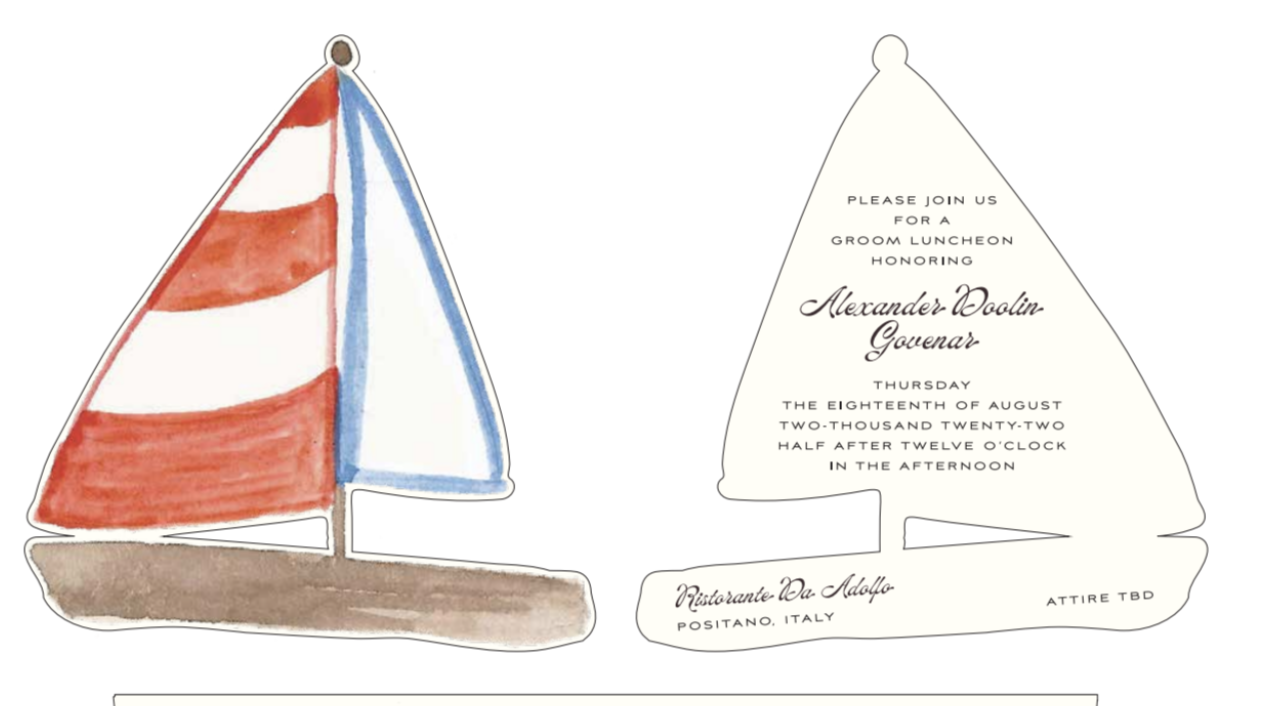 PLEASE JOIN US
FOR A
GROOM LUNCHEON
HONORING
Alexander Doolin
Govenar
THURSDAY
THE EIGHTEENTH OF AUGUST
TWO-THOUSAND TWENTY-TWO
HALF AFTER TWELVE O'CLOCK
IN THE AFTERNOON
Ristorante Da Adolfo
POSITANO, ITALY
ATTIRE TBD